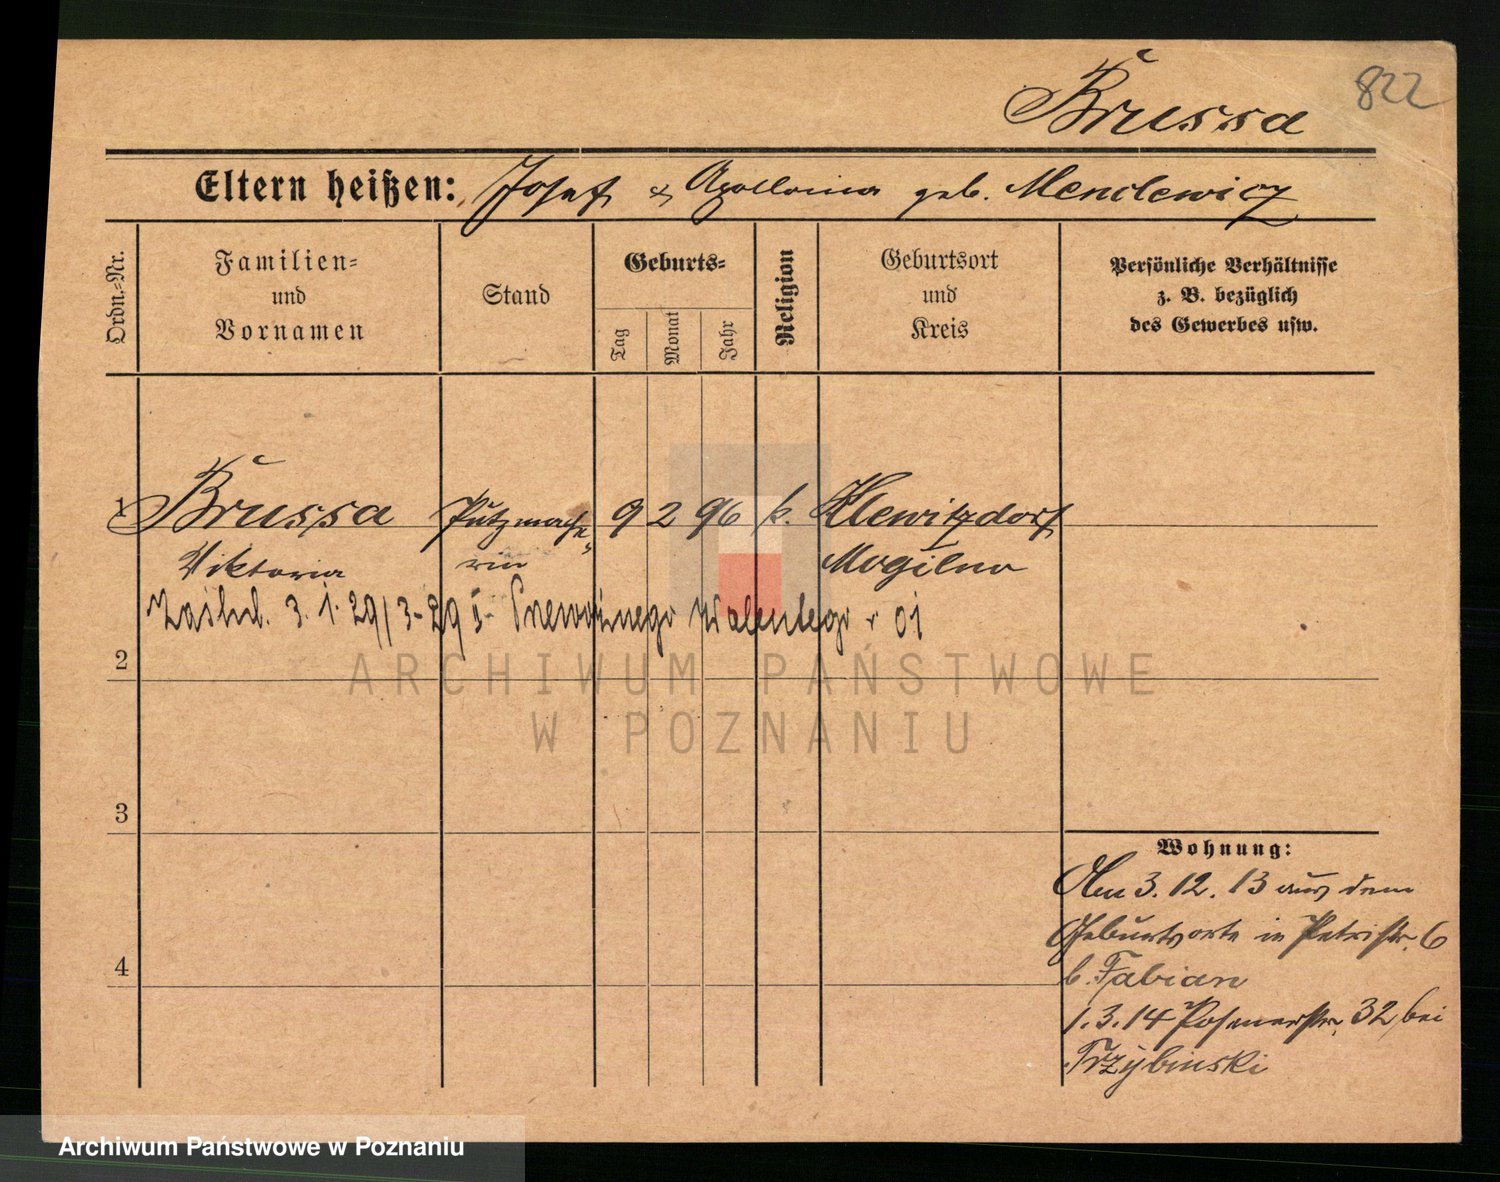 822
Brussa
Eltern heißen: Josef & Apollonia geb. Mendlewicz
Ordn.-Nr.
Familien-
und
Vornamen
Stand
Geburts-
Tag
Monat
Jahr
Religion
Geburtsort
und
Kreis
Persönliche Verhältnisse
z. B. bezüglich
des Gewerbes usw.
1 Brussa Putzmache- 9 2 96 k. Klewitzdorf
Viktoria rin Mogilno
3. 1. 29 / 3-29 Walentego
2
ARCHIWUM PAŃSTWOWE
W POZNANIU
3
Wohnung:
Am 3. 12. 13 aus dem
Geburtsorte in Petristr. 6
b. Fabian
4
1.3.14 Posenerstr. 32, bei
Trzybinski
Archiwum Państwowe w Poznaniu